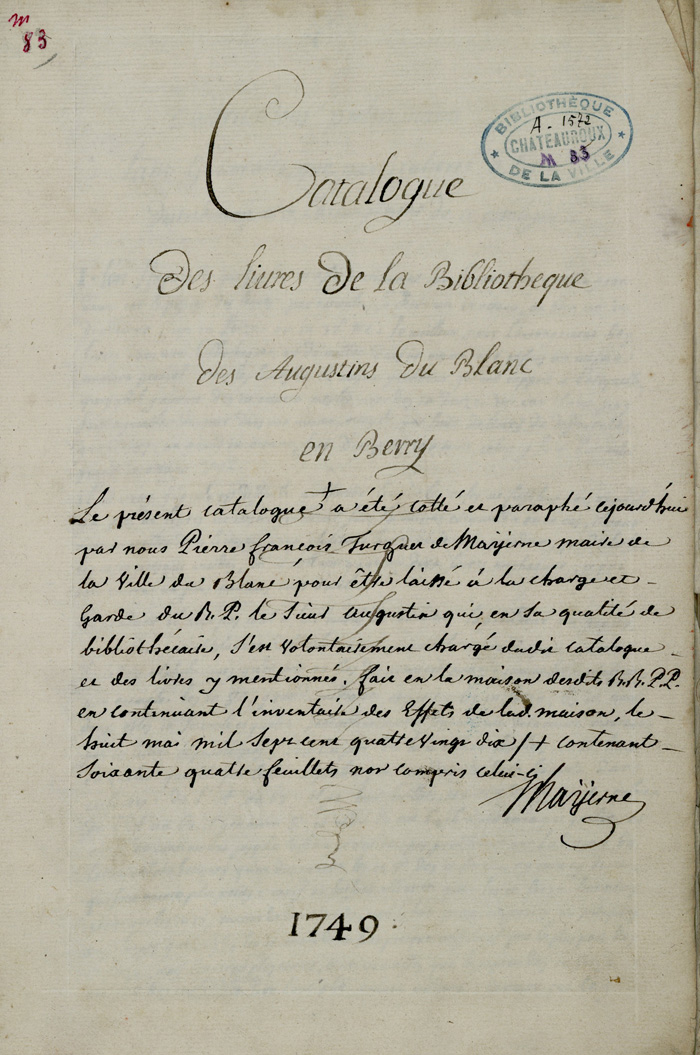 m
83
BIBLIOTHÈQUE
A. 1572
CHATEAUROUX
M 83
DE LA VILLE
Catalogue
Des liures De la Bibliotheque
Des Augustins Du Blanc
en Berry
Le présent catalogue + a été cotté et paraphé cejourd'hui
par nous Pierre françois Turquet de Mayerne maire de
la ville du Blanc, pour être laissé à la charge et -
Garde du R. P. le Sieur Augustin qui, en sa qualité de
bibliothécaire, s'est volontairement chargé dudit catalogue -
et des livres y mentionnés. fait en la maison desdits R.R.P.P.
en continuant l'inventaire des Effets de lad. maison, le -
huit mai mil sept cent quatre vingt dix /+ contenant -
soixante quatre feuillets non compris celui-ci
Mayerne
1749